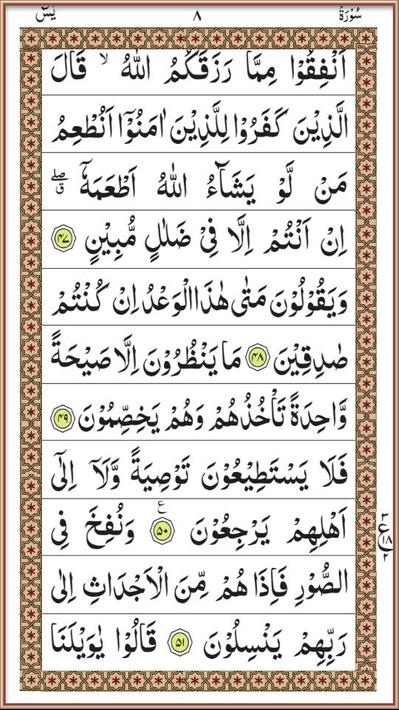 سُوْرَةُ ٨ يٰسٓ
اَنْفِقُوْا مِمَّا رَزَقَكُمُ اللّٰهُ ۙ قَالَ
الَّذِيْنَ كَفَرُوْا لِلَّذِيْنَ اٰمَنُوْۤا اَنُطْعِمُ
مَنْ لَّوْ يَشَآءُ اللّٰهُ اَطْعَمَهٗۤ ۖق
اِنْ اَنْتُمْ اِلَّا فِيْ ضَلٰلٍ مُّبِيْنٍ ﴿۴۷﴾
وَيَقُوْلُوْنَ مَتٰى هٰذَا الْوَعْدُ اِنْ كُنْتُمْ
صٰدِقِيْنَ ﴿۴۸﴾ مَا يَنْظُرُوْنَ اِلَّا صَيْحَةً
وَّاحِدَةً تَاْخُذُهُمْ وَهُمْ يَخِصِّمُوْنَ ﴿۴۹﴾
فَلَا يَسْتَطِيْعُوْنَ تَوْصِيَةً وَّلَاۤ اِلٰٓى
اَهْلِهِمْ يَرْجِعُوْنَ ﴿۵۰﴾ ع وَنُفِخَ فِي
٣ ع ١٨ ٢
الصُّوْرِ فَاِذَا هُمْ مِّنَ الْاَجْدَاثِ اِلٰى
رَبِّهِمْ يَنْسِلُوْنَ ﴿۵۱﴾ قَالُوْا يٰوَيْلَنَا